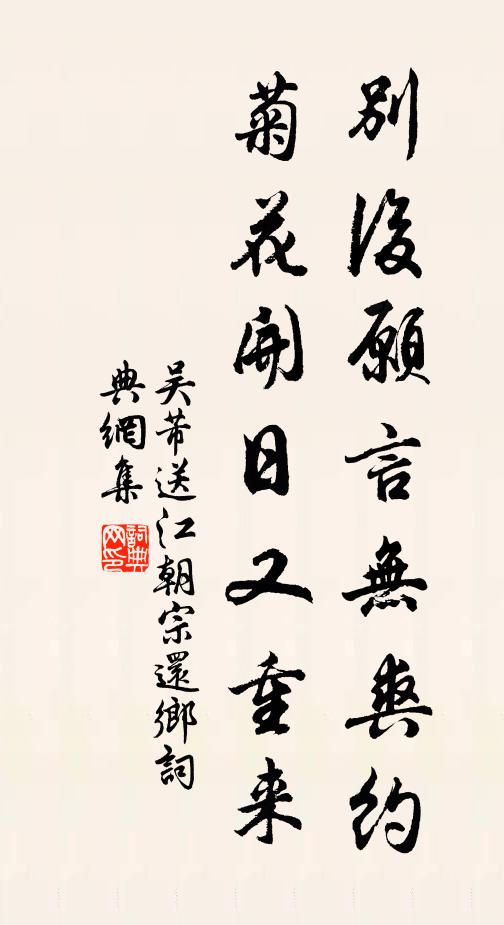 別後願言無爽約
菊花開日又重来
吴芾送江朝宗還鄉詞
典網集
詞典网印